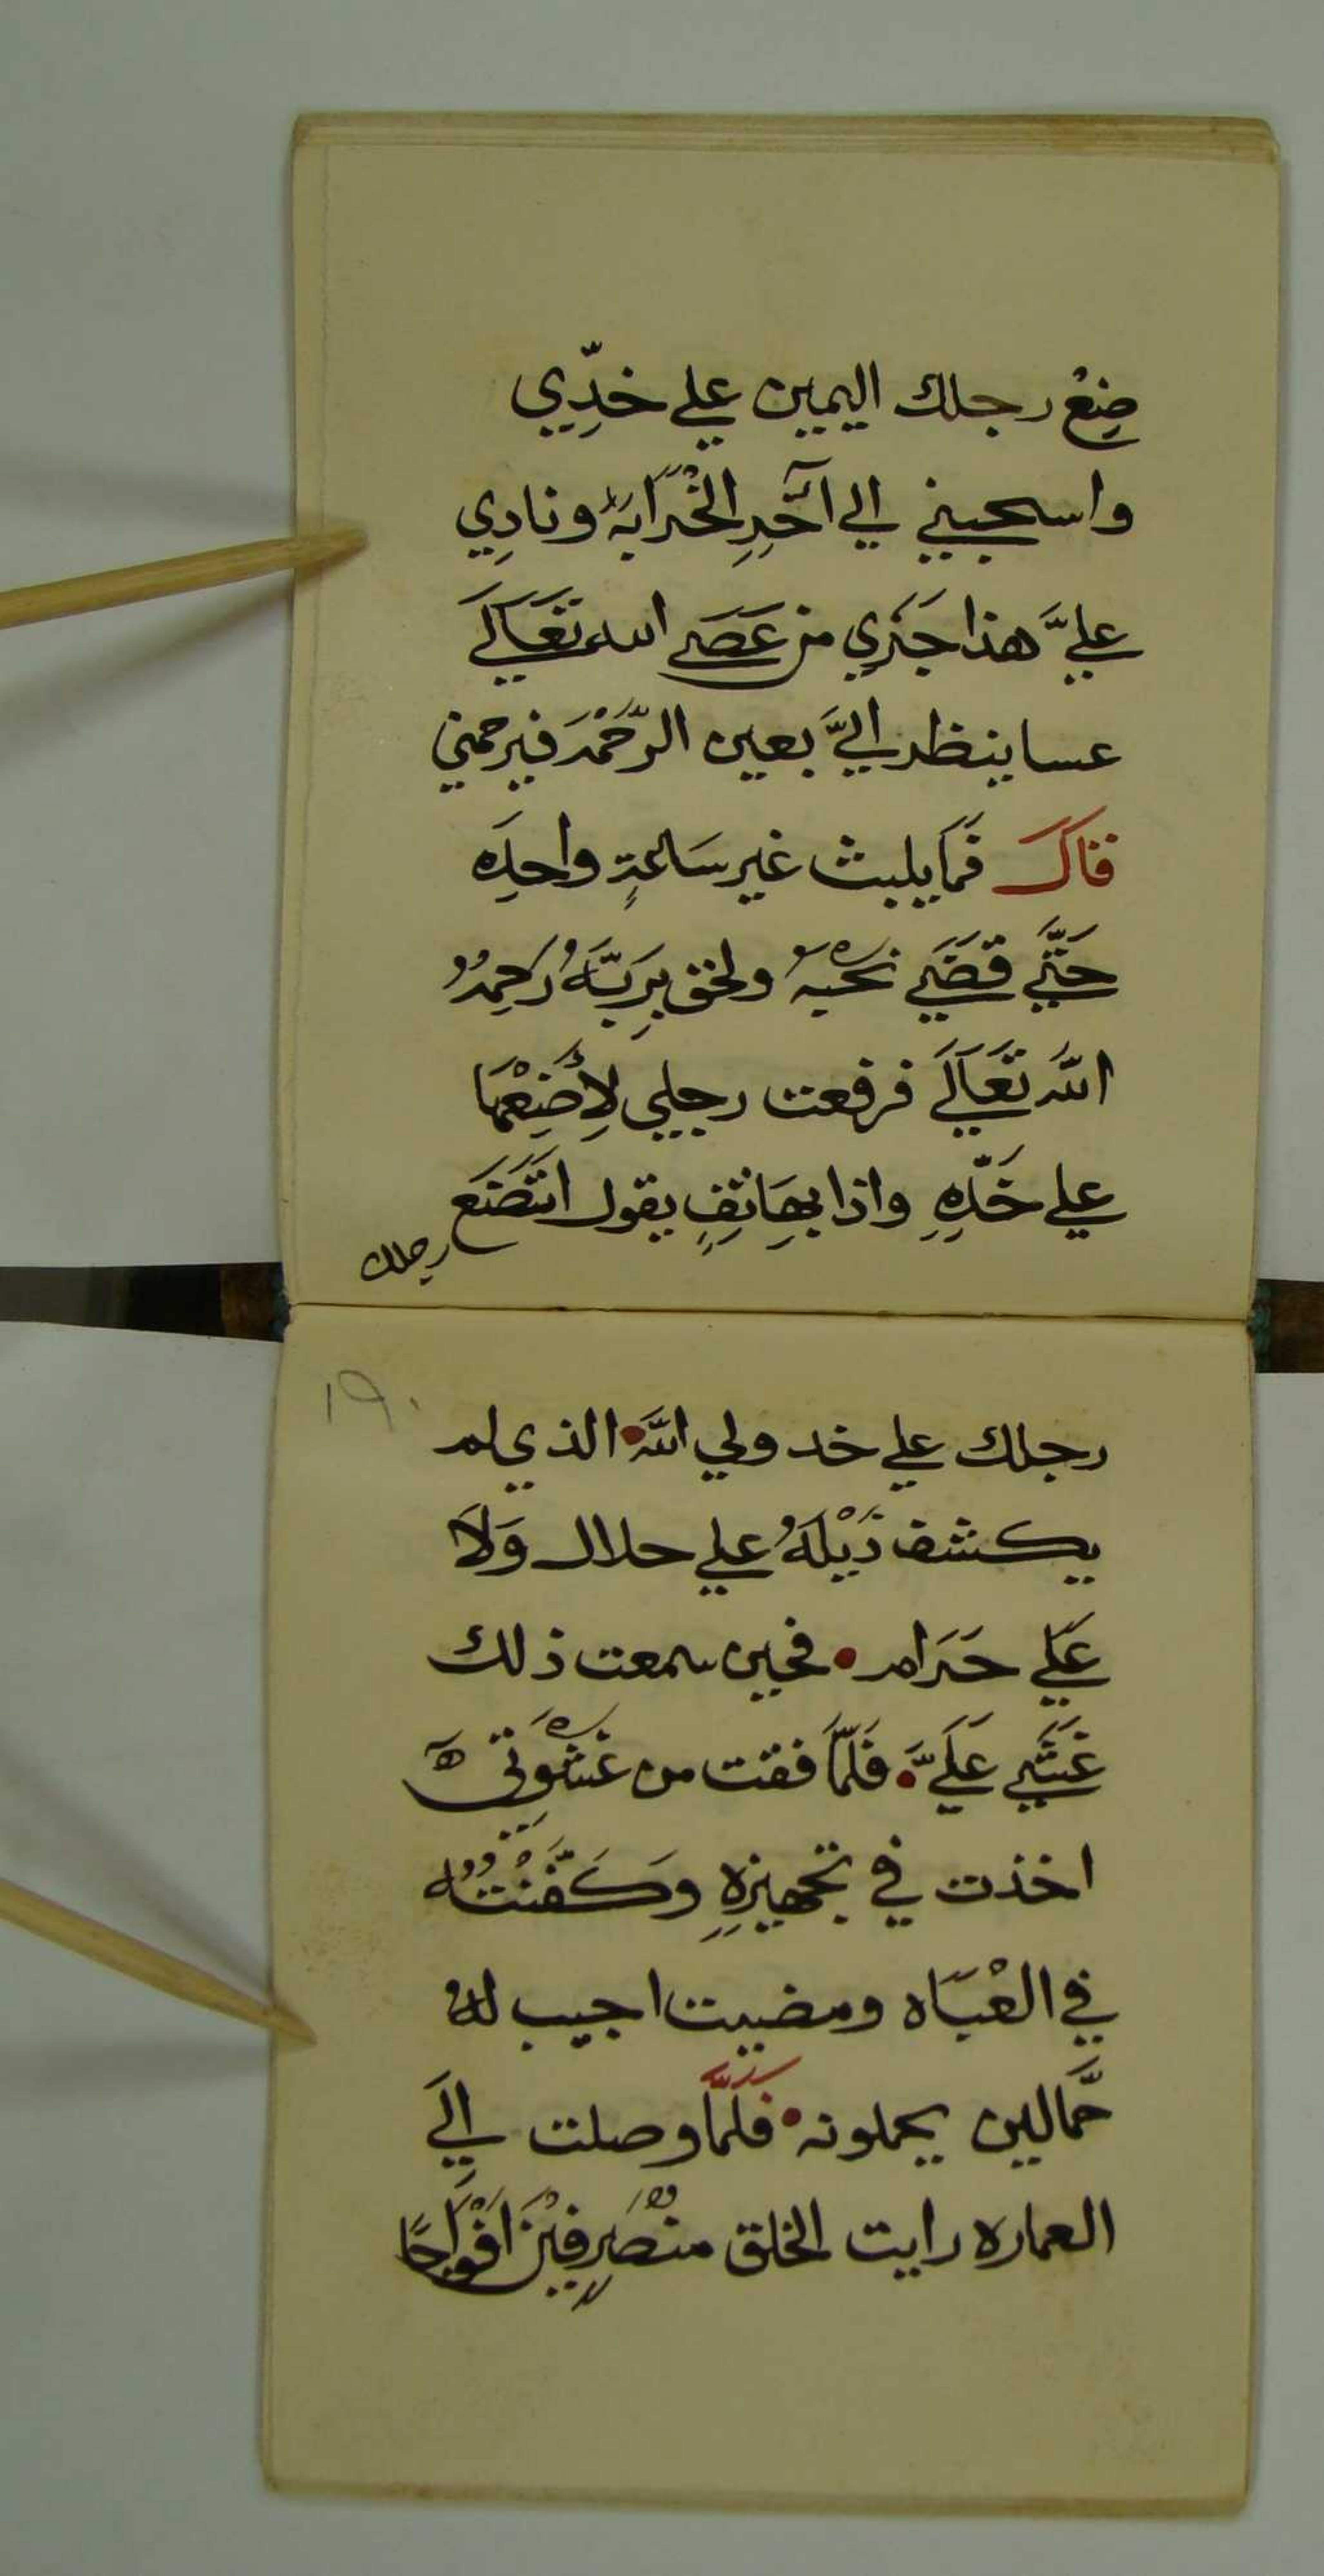 ضِعْ رجلك اليمين علي خدِّي
واسحبيني الي آخِرِ الخْرَابهْ ونادِي
عليَّ هذا جَزَي من عَصَي الله تَعَالَي
عسا ينظر اليَّ بعين الرَّحْمَه فيرحمني
قال فَمَا يلبث غير سَاعةٍ واحدِه
حَتَّي قَضَي نحْبهُ ولحق بِرَبَّهُ رَحِمهُ
اللهُ تَعَالَي فرفعت رجلي لِأَضِعْهَا
علي خَدّهِ واذا بهَاتِفٍ يقول اتَضَع
رجلك
١٩٠
رجلك علي خد ولي اللهَ الذي لم
يكشف ذَيْلَهُ علي حلال وَلَا
عَلي حَرَام • فحين سمعت ذلك
غَشَي عَلَيَّ • فَلَمَّا فقت من غَشْوَتِي ه
اخذت في تجهيزهِ وَكَفَّنْتُهُ
في العْبَاه ومضيت اجيب لهُ
حَّمالين يحملونه • فَلَمَّا وصلت اِلَي
العماره رايت الخلق منْصَرِفيْنَ افْوَاجًا